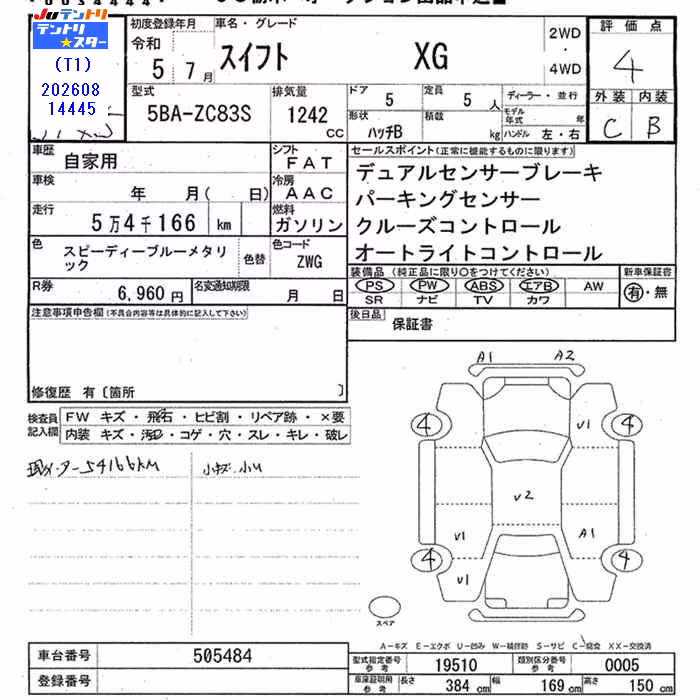 JUテントリ
テントリ★スター
(T1)
202608
14445
初度登録年月
令和
5 7月
車名・グレード
スイフト XG
2WD
・
4WD
評価点
4
外装 内装
C B
型式
5BA-ZC83S
排気量
1242
CC
ドア
5
定員
5 人
ディーラー・並行
モデル年式 年
形状
ハッチB
積載
kg
ハンドル 左・右
車歴
自家用
シフト
FAT
車検
年 月( 日)
冷房
AAC
走行
5万4千166 km
燃料
ガソリン
色
スピーディーブルーメタリック
色替
色コード
ZWG
R券
6,960円
名変通知期限
月 日
セールスポイント(正常に機能するものに限ります)
デュアルセンサーブレーキ
パーキングセンサー
クルーズコントロール
オートライトコントロール
装備品(純正品に限り○をつけてください)
新車保証書
PS PW ABS エアB AW
SR ナビ TV カワ
有・無
後日品
保証書
注意事項申告欄(不具合内容等は具体的に記入して下さい)
修復歴 有〔箇所 〕
検査員記入欄
FW キズ・飛石・ヒビ割・リペア跡・×要
内装 キズ・汚れ・コゲ・穴・スレ・キレ・破レ
現メーター54166KM
小キズ・小U
A1 A2
4 4
U1
U2
U1 A1
4 4
U1
スペア
A-キズ E-エクボ U-凹み W-補修跡 S-サビ C-腐食 XX-交換済
車台番号
505484
登録番号
型式指定番号
参考
19510
類別区分番号
参考
0005
車庫証明用
参考
長さ 384 cm 幅 169 cm 高さ 150 cm